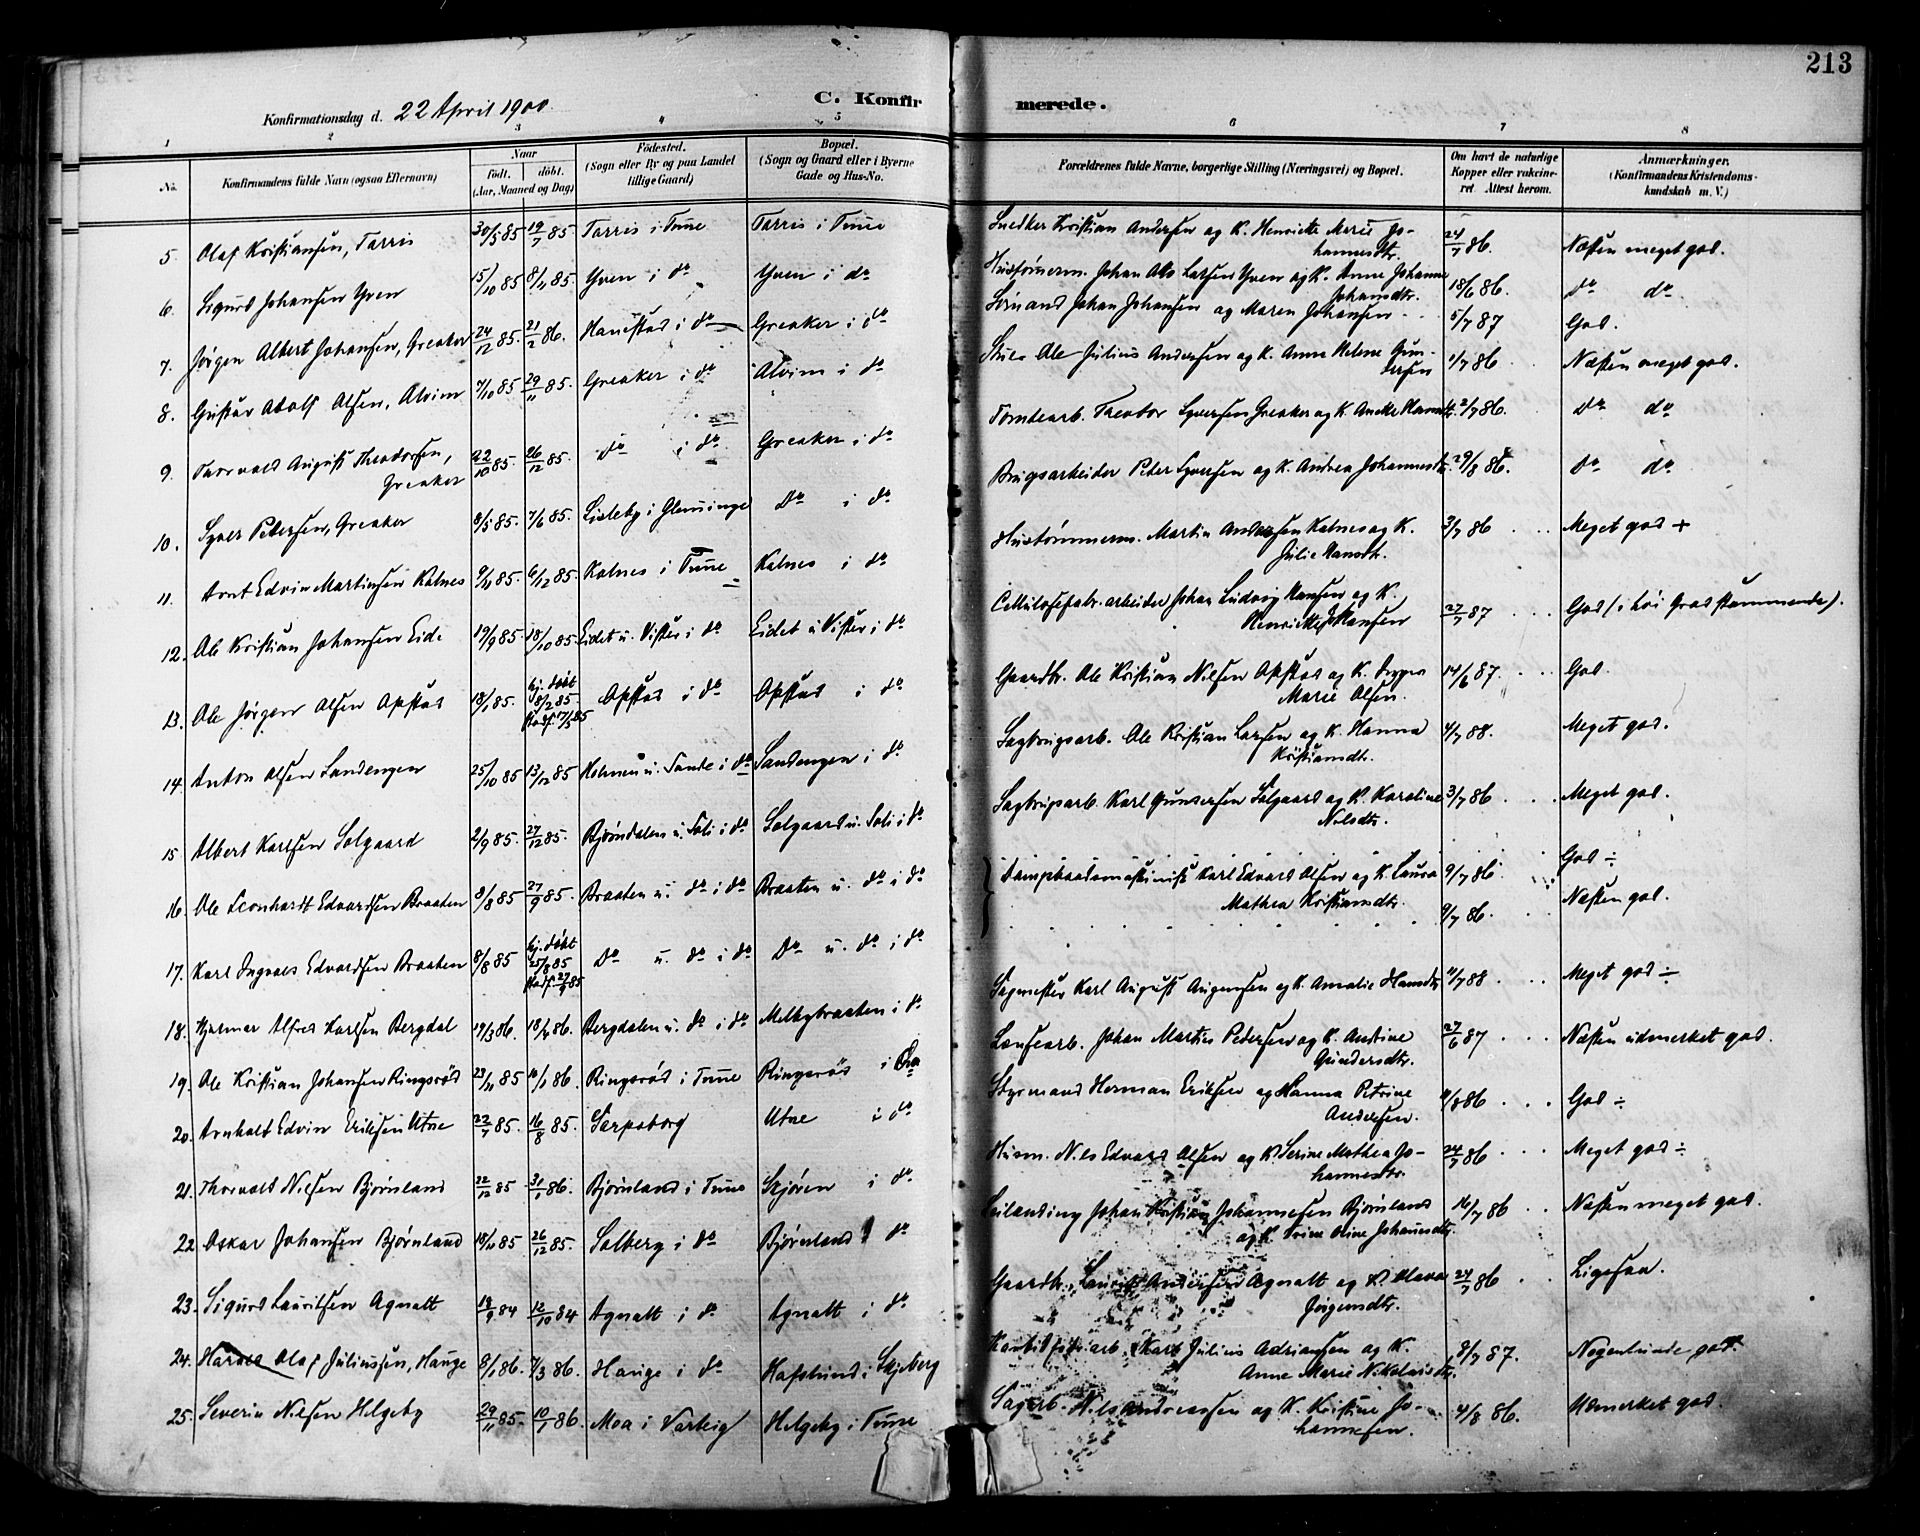 213
Konfirmationsdag d. 22 April 1900.
C. Konfirmerede.
1 2 3 4 5 6 7 8
No. Konfirmandens fulde Navn (ogsaa Efternavn) Naar födt. döbt. (Aar, Maaned og Dag) Födested. (Sogn eller By og paa Landet tillige Gaard) Bopæl. (Sogn og Gaard eller i Byerne Gade og Hus-No. Forældrenes fulde Navne, borgerlige Stilling (Næringsvei) og Bopæl. Om havt de naturlige Kopper eller vakcineret. Attest herom. Anmærkninger. (Konfirmandens Kristendomskundskab m. V.)
5. Olaf Kristiansen, Tarris 30/5 85 19/7 85 Tarris i Tune Tarris i Tune Snedker Kristian Andersen og K. Henriette Marie Johannesdtr. 24/7 86. Næsten meget god.
6. Sigurd Johansen Yven 15/10 85 8/11 85. Yven i do Yven i do Hustømerm. Johan Larsen Yven og K. Anne Johanne Johansdtr. 18/6 86. do do
7. Jörgen Albert Johansen, Greaker 24/12 85. 21/2 86. Hanestad i do Greaker i do Sömand Johan Johansen og Maren Johansen 5/7 87 God.
8. Gustav Adolf Olsen, Alvim 7/10 85 29/11 85. Greaker i do Alvim i do Ole Julius Andersen og K. Anne Helene Gundersen 1/7 86 Næsten meget god.
9. Torvald August Theodorsen, Greaker 22/10 85. 26/12 85. do i do Greaker i do Tomtearb. Theodor Syversen Greaker og K. 2/7 86. do do
10. Syver Petersen, Greaker 8/5 85. 7/6 85. Lisleby i Glemminge Do i do Brugsarbeider Peter Syversen og K. Andrea Johannesdtr. 29/8 86. Do do
11. Arnt Edvin Martinsen Kalnes 9/11 85. 6/12 85. Kalnes i Tune Kalnes i do Hustömmerm. Martin Andersen Kalnes og K. Julie Hansdtr. 3/7 86 Meget god +
12. Ole Kristian Johansen Eide 19/9 85. 18/10 85. Eidet u. Vister i do Eidet u Vister i do Cellulosefabr. arbeider Johan Ludvig Hansen og K. Henriette Hansen 27/7 87 God (i høi Grad stammende).
13. Ole Jörgen Olsen Opstad 18/1 85. hj. døbt 8/2 85. stadf. 17/5 85 Opstad i do Opstad i do Gaardbr. Ole Kristian Nilsen Opstad og K. Inger Marie Olsen. 14/6 87. God.
14. Anton Olsen Sandengen 25/10 85 13/12 85 Holmen u. Tande i do Sandengen i do Sagbrugsarb. Ole Kristian Larsen og K. Hanna Kristiansdtr. 4/7 88. Meget god.
15. Albert Karlsen Solgaard 2/9 85. 27/12 85. Bjørndalen u. Soli i do Solgaard u. Soli i do Sagbrugsarb. Karl Gundersen Solgaard og K. Karoline Nilsdtr. 3/7 86 Meget god.
16. Ole Leonhardt Edvardsen Braaten 8/8 85 27/9 85. Braaten u. do i do Braaten u. do i do Dampbaadsmaskinist Karl Edvard Olsen og K. Laura Mathea Kristiansdtr. 9/7 86. God ÷
17. Karl Ingvald Edvardsen Braaten 8/8 85 hj. døbt 25/8 85 stadf. 27/9 85 Do u. do i do Do u. do i do 9/7 86. Næsten god.
18. Hjalmar Alfred Karlsen Bergdal 19/3 86. 18/4 86. Bergdalen u. do i do Melbybraaten i do Sagmester Karl August Augensen og K. Amalie Hansdtr. 11/7 88 Meget god ÷
19. Ole Kristian Johansen Ringsröd 23/11 85 10/1 86. Ringsröd i Tune Ringsröd i do Lænsearb. Johan Martin Pedersen og K. Andrine Gundersdtr. 27/6 87 Næsten udmerket god.
20. Arnholt Edvin Eriksen Utne 22/7 85. 16/8 85. Sarpsborg Utne i do Styrmand Herman Eriksen og Hanna Petrine Andersen. 11/8 86 God ÷
21. Thorvald Nilsen Bjørnland 22/12 85 31/1 86. Bjørnland i Tune Skjören i do Husm. Nils Edvard Olsen og K. Serine Mathea Johannesdtr. 24/7 86 Meget god ÷
22. Oskar Johansen Bjørnland 18/11 85 26/12 85. Solberg i do Bjørnland i do Leilænding Johan Kristian Johannesen Bjørnland og K. Trine Oline Johannesdtr. 16/7 86 Næsten meget god.
23. Sigurd Lauritsen Agnalt 19/9 84 12/10 84 Agnalt i do Agnalt i do Gaardbr. Laurits Andersen Agnalt og K. Mava Jörgensdtr. 24/7 86 Ligesaa.
24. Harald Olaf Juliussen, Hauge 8/1 86. 7/3 86. Hauge i do Hafslund i Skjeberg Karl Julius Adriansen og K. Anne Marie Nikolaisdtr. 8/7 87. Nogenlunde god.
25. Severin Nilsen Helgeby 29/11 85. 10/1 86. Moa i Varteig Helgeby i Tune Sagarb. Nils Andreassen og K. Kristine Johannesen. 4/8 86. Udmerket god.